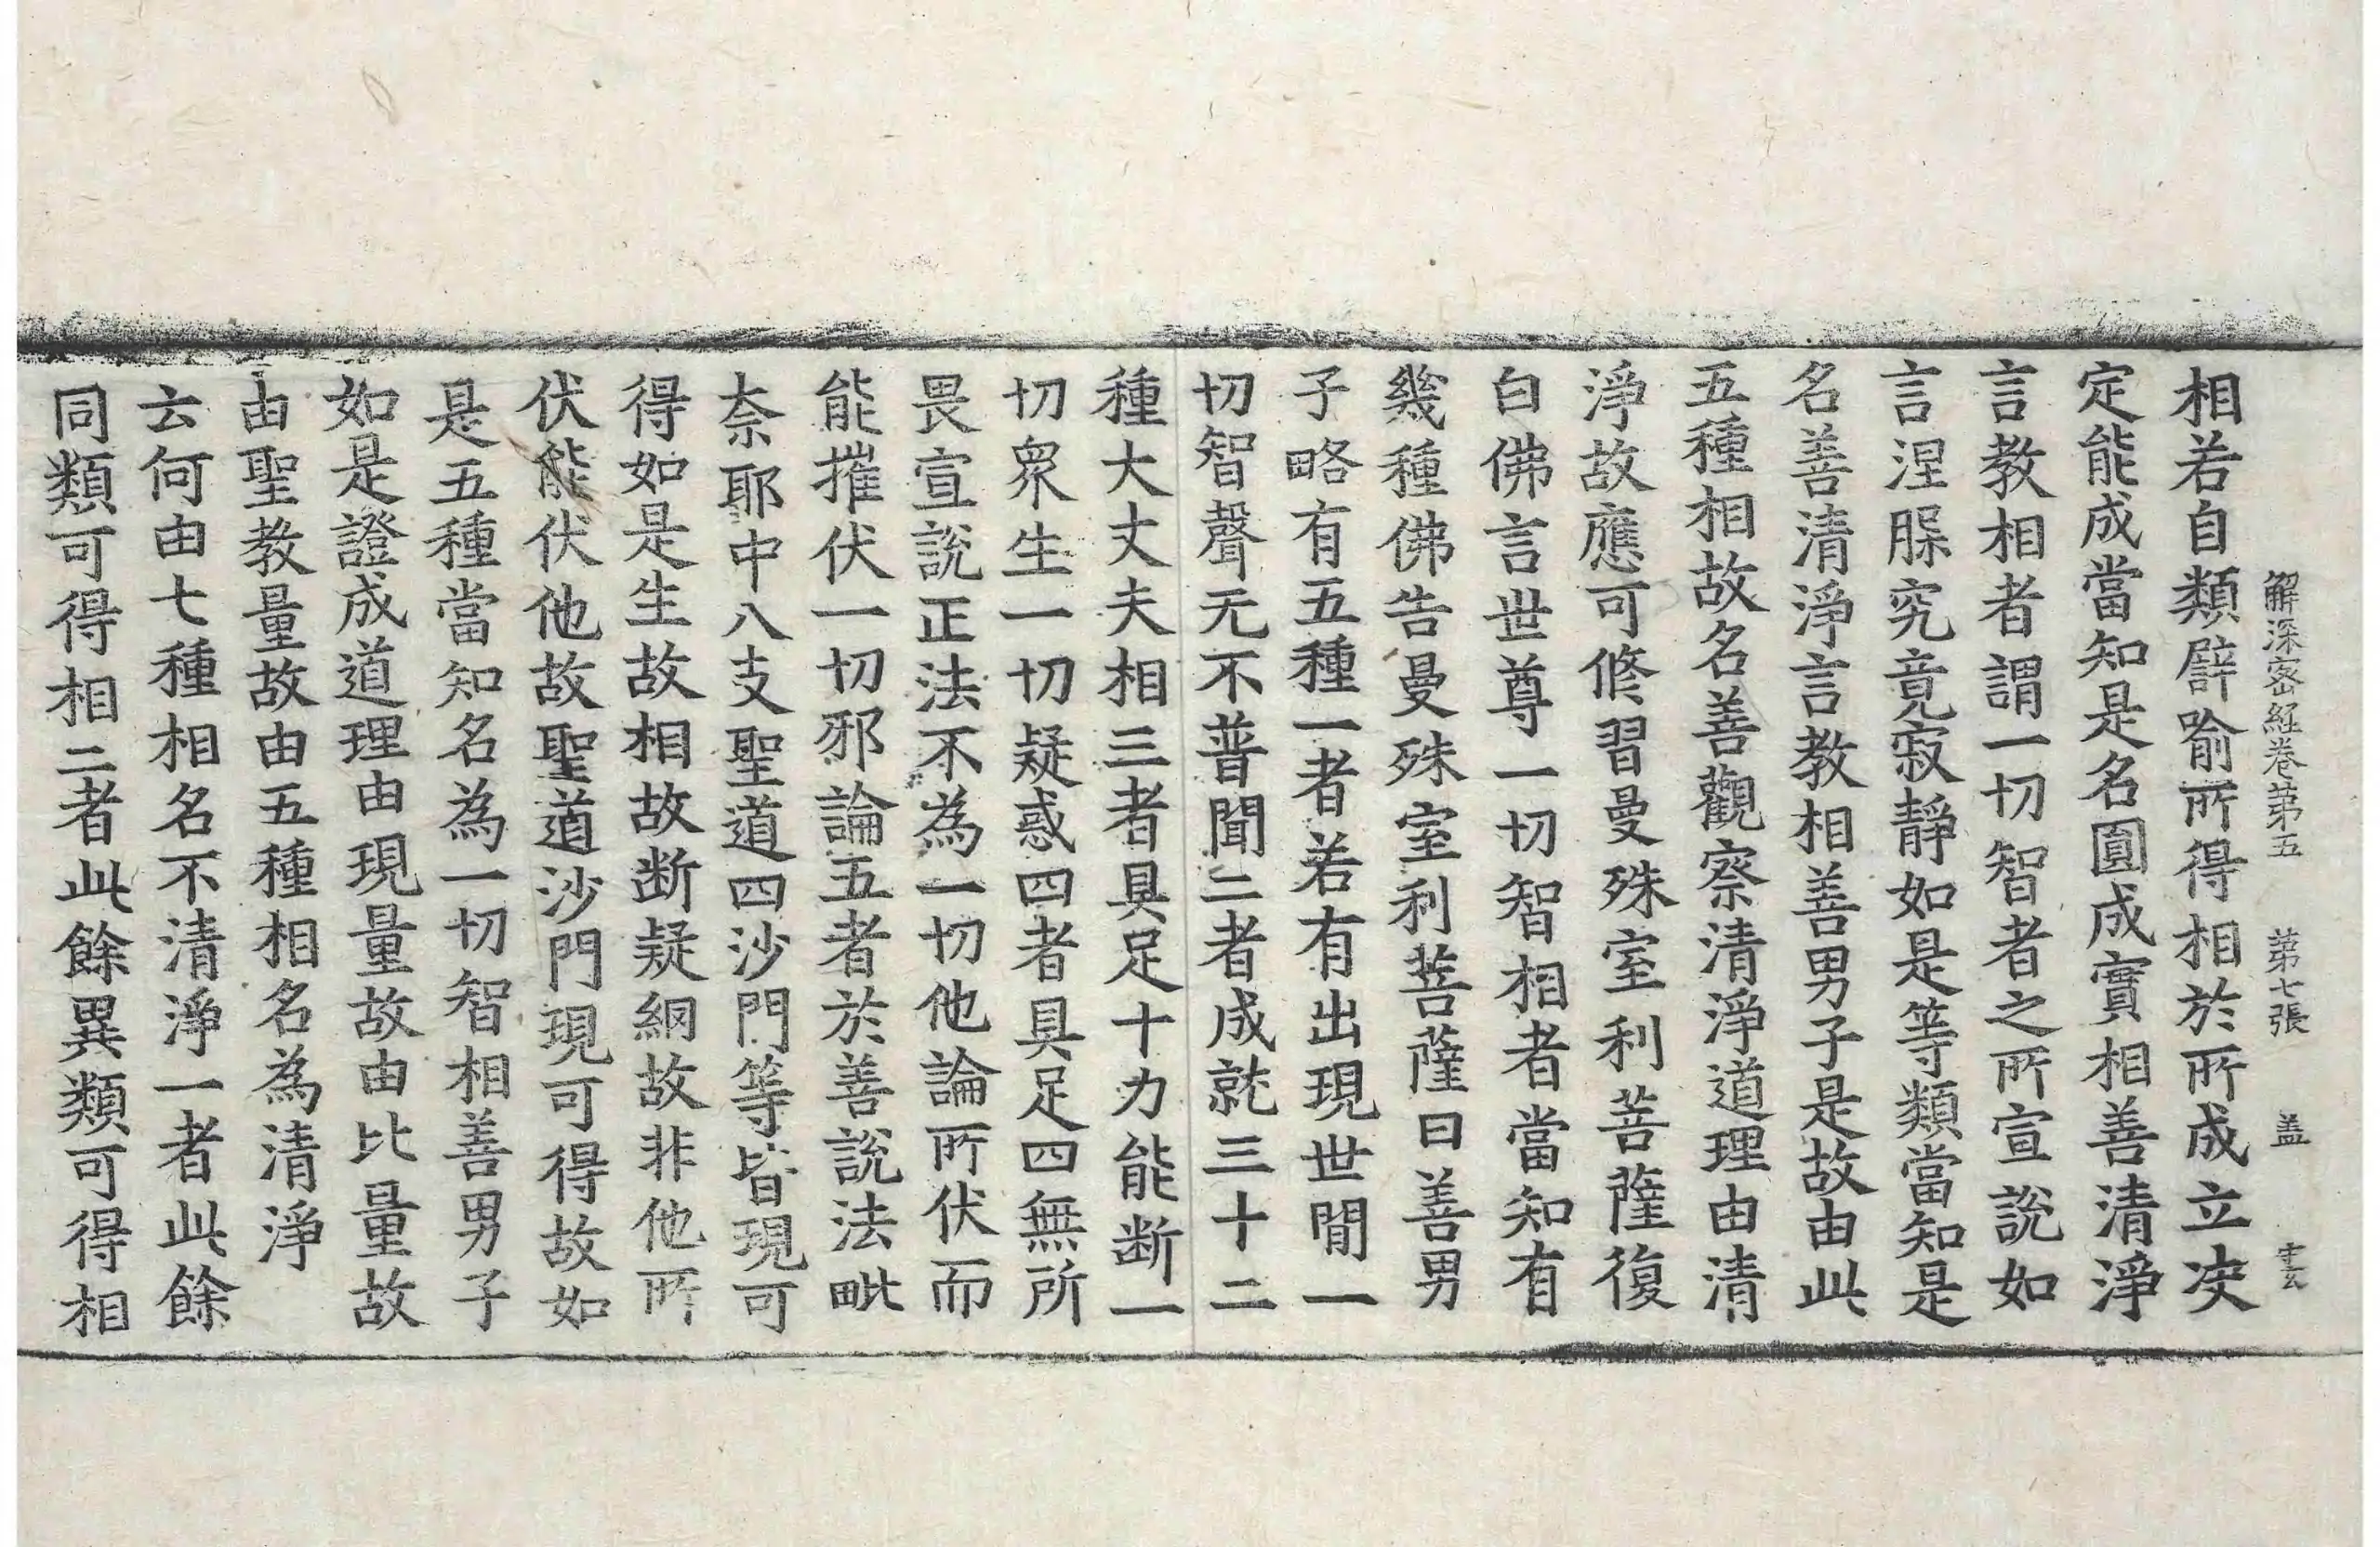 解深密経巻第五 第七張 盖
相若自類譬喻所得相於所成立决
定能成當知是名圓成實相善清淨
言教相者謂一切智者之所宣說如
言涅槃究竟寂靜如是等類當知是
名善清淨言教相善男子是故由此
五種相故名善觀察清淨道理由清
淨故應可修習曼殊室利菩薩復
白佛言世尊一切智相者當知有
幾種佛告曼殊室利菩薩曰善男
子略有五種一者若有出現世閒一
切智聲无不普聞二者成就三十二
種大丈夫相三者具足十力能断一
切衆生一切疑惑四者具足四無所
畏宣說正法不為一切他論所伏而
能摧伏一切邪論五者於善說法毗
奈耶中八支聖道四沙門等皆現可
得如是生故相故断疑網故非他所
伏能伏他故聖道沙門現可得故如
是五種當知名為一切智相善男子
如是證成道理由現量故由比量故
由聖教量故由五種相名為清淨
云何由七種相名不清淨一者此餘
同類可得相二者此餘異類可得相